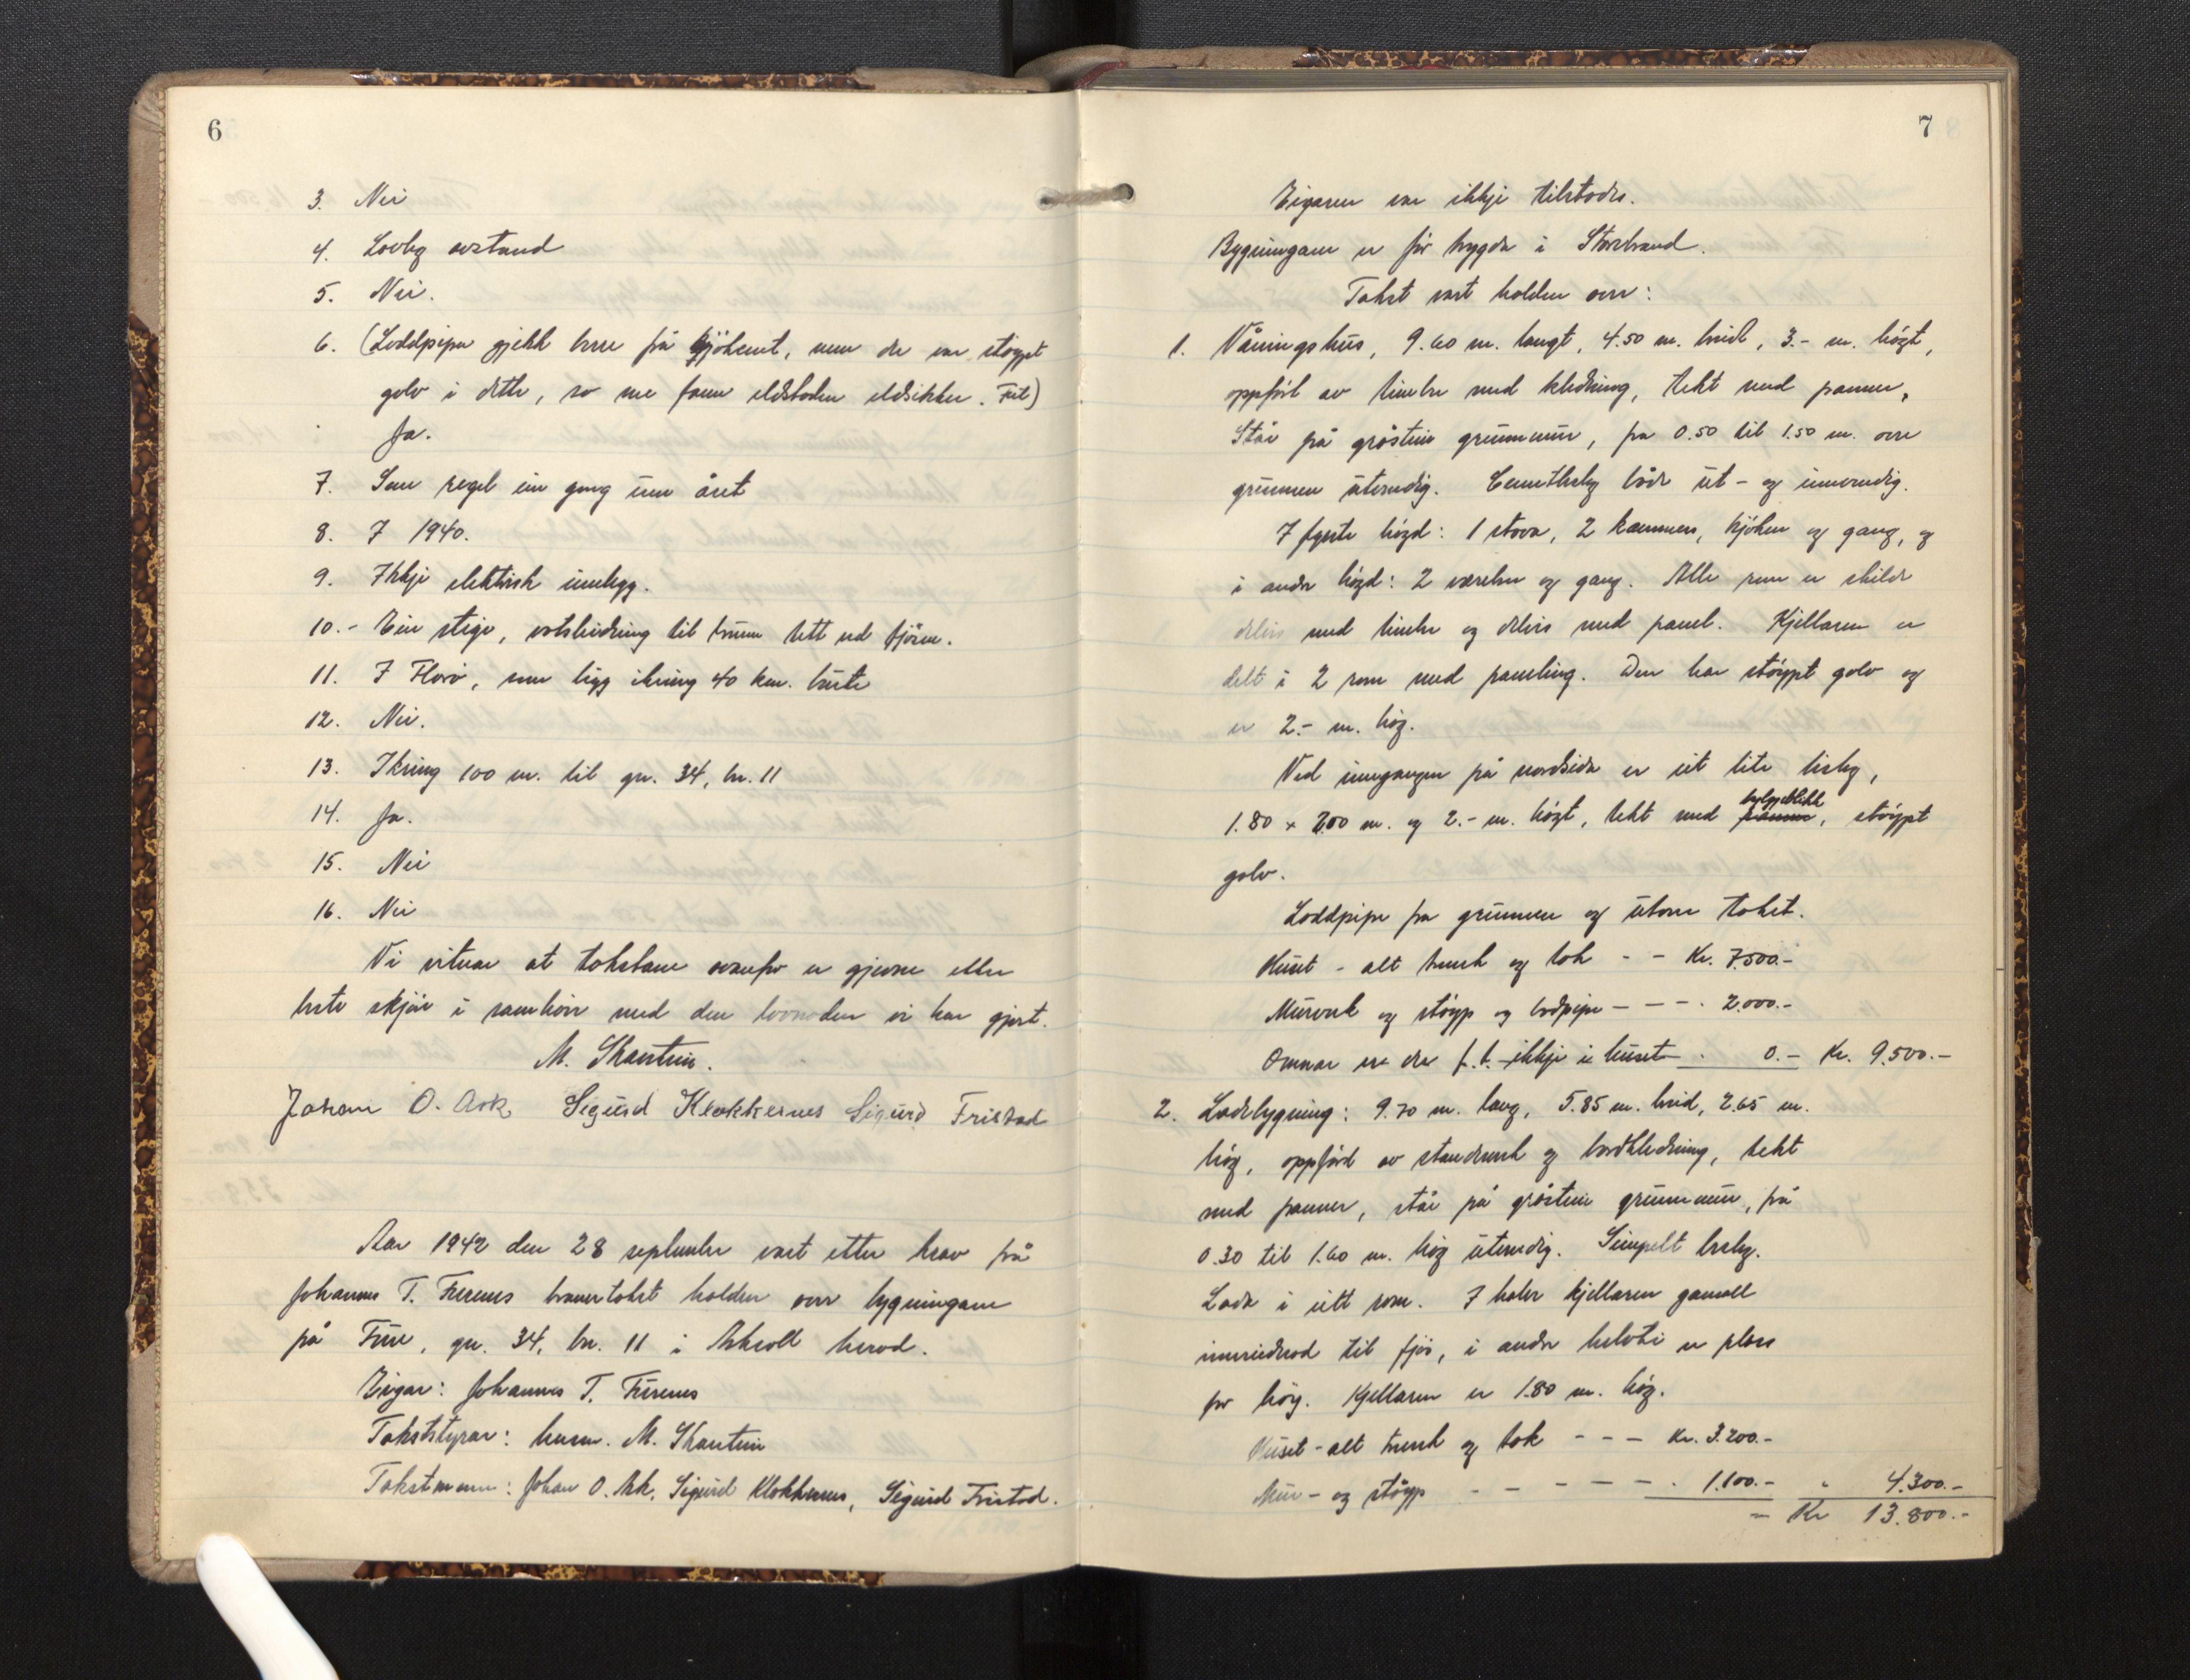 6
3. Nei
4. Lovleg avstand
5. Nei.
6. (Loddpipa gjekk berre frå kjøkenet, men der var støypt
golv i dette, so me fann eldstaden eldsikker. Fut)
Ja.
7. Som regel ein gong um året
8. I 1940.
9. Ikkje elektrisk innlegg.
10.- Ein stige, vatsleidning til brunn tett ved fjøren.
11. I Florö, som ligg ikring 40 km. burte
12. Nei.
13. Ikring 100 m. til gn. 34, bn. 11
14. Ja.
15. Nei
16. Nei
Vi vitnar at takstane ovanfor er gjevne etter
beste skjön i samhöve med den lovnaden vi har gjort.
M. Skarstein.
Johan O. Ask Sigurd Klokkernes Sigurd Fristad
Aar 1942 den 28 september vart etter krav frå
Johannes T. Furenes branntakst halden over bygningane
på Fure, gn. 34, bn. 11 i Askvoll herad.
Eigar: Johannes T. Furenes
Takststyrar: lensm. M. Skarstein
Takstmenn: Johan O. Ask, Sigurd Klokkernes, Sigurd Fristad.
7
Eigaren var ikkje tilstades.
Bygningane er för trygda i Storebrand.
Takst vart halden over:
1. Våningshus, 9.60 m. langt, 4.50 m. breidt, 3.- m. högt,
oppfört av timber med kledning, tekt med panner,
Står på gråstein grunnmur, fra 0.50 til 1.50 m. over
grunnen utvendig. både ut- og innvendig.
I fyrste högd: 1 stova, 2 kammers, kjöken og gang, og
i andre högd: 2 værelser og gang. Alle rom er skilde
delvis med timber og delvis med panel. Kjellaren er
delt i 2 rom med paneling. Den har støypt golv og
er 2.- m. høg.
Ved inngangen på nordsida er eit lite bislag,
1.80 x 2.00 m. og 2.- m. högt, tekt med panner bylgjeblikk, støypt
golv.
Loddpipe fra grunnen og utover taket.
Huset - alt treverk og tak - - Kr. 7.500.-
Murverk og støyp og lodpipe - - - - 2.000.-
Omnar var der f.t. ikkje i huset - . 0.- Kr. 9.500.-
2. Lødebygning: 9.70 m. lang, 5.85 m. breid, 2.65 m.
høg, oppförd av standverk og bordkledning, tekt
med panner, står på gråstein grunnmur, frå
0.30 til 1.60 m. høg utvendig. Simpelt bislag.
Løda i eitt rom. I halve kjellaren gamall
innreidnad til fjös, i andre helvti er plass
for höy. Kjellaren er 1.80 m. høg.
Huset - alt treverk og tak - - - Kr. 3.200.-
Mur- og støyp - - - - - - . 1.100.- " 4.300.-
- Kr 13.800.-